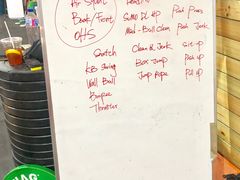 Air Squat Deadlift
Back/Front SUMO DL HP Push Press
OHS Med-Ball Clean Push Jerk
Snatch Clean & Jerk Sit up
KB Swing Box Jump Push up
Wall Ball Jump Rope Pull up
Burpee
Thruster